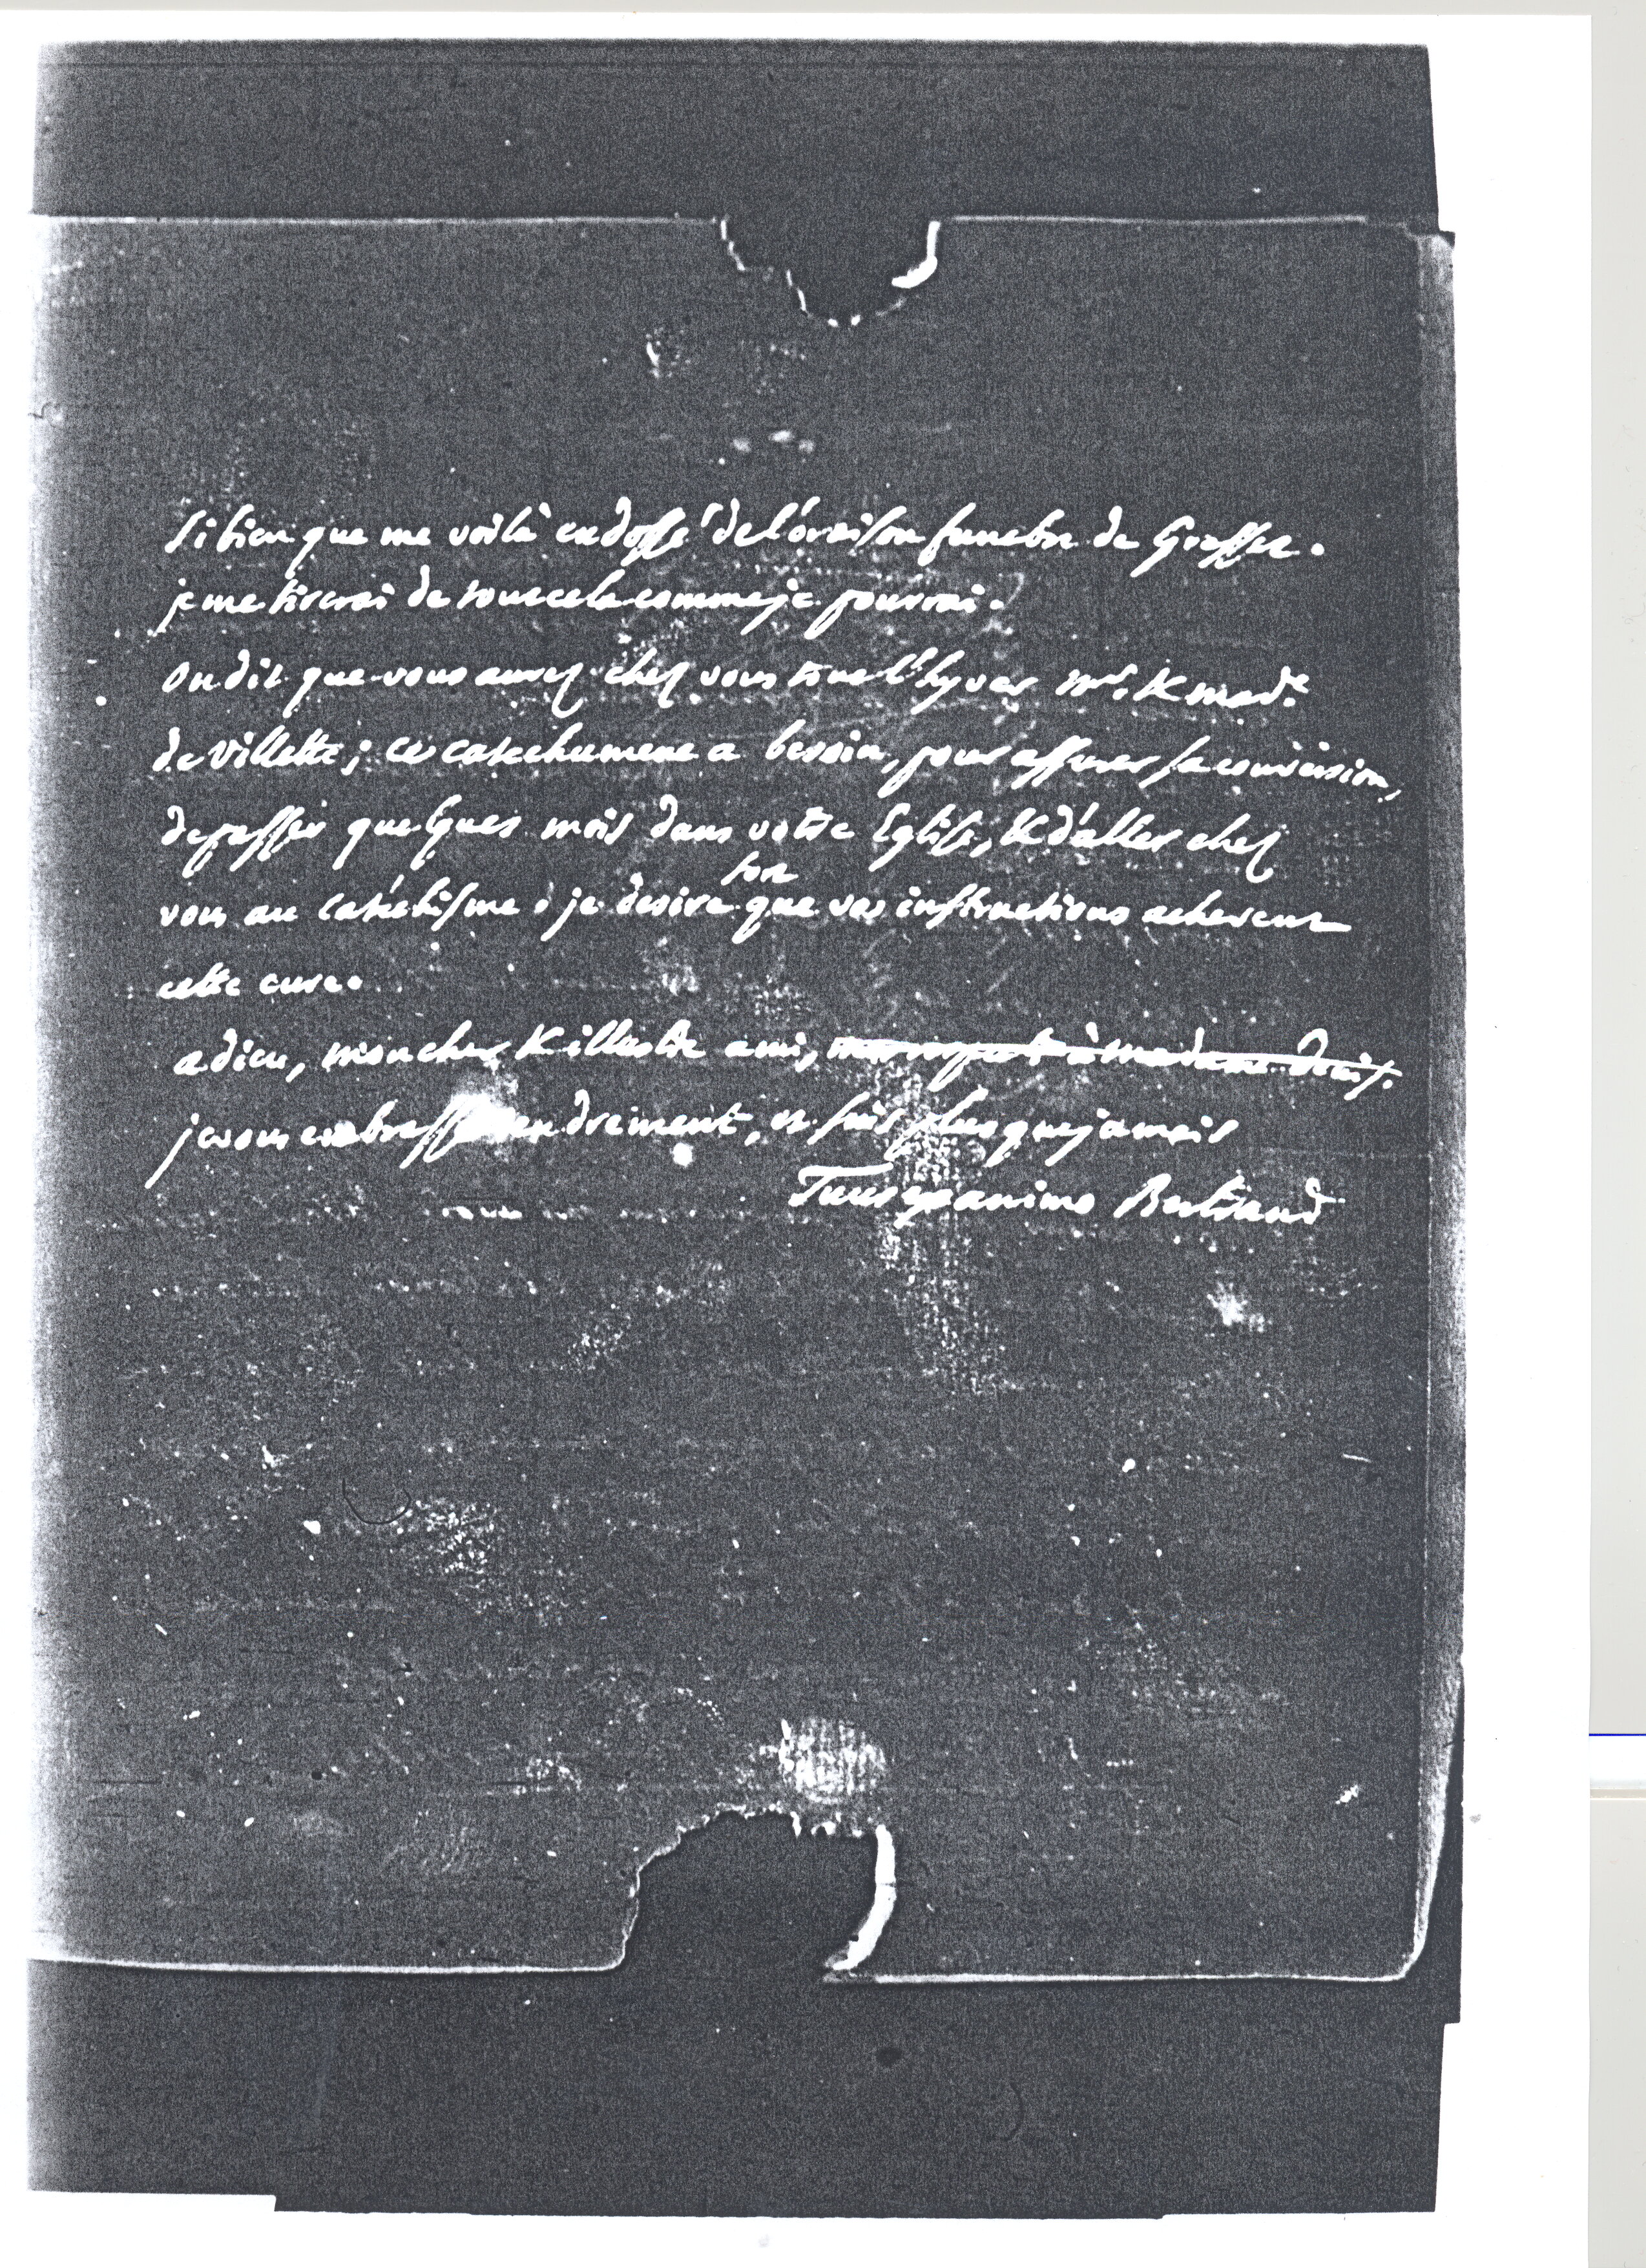 si bien que me voilà endossé de l'oraison funebre de Gresset.
je me tirerai de tout cela comme je pourrai.
On dit que vous aurez chez vous tout l'hyver Mr. & Made.
de Villette; ce catechumene a besoin, pour assurer sa conversion,
de passer quelques mois dans votre Eglise, & d'aller chez
vous au catéchisme; je desire fort que vos instructions achevent
cette cure.
adieu, mon cher & illustre ami, mes respects à madame Denis.
je vous embrasse tendrement, et suis plus que jamais
Tuus ex animo Bertrand